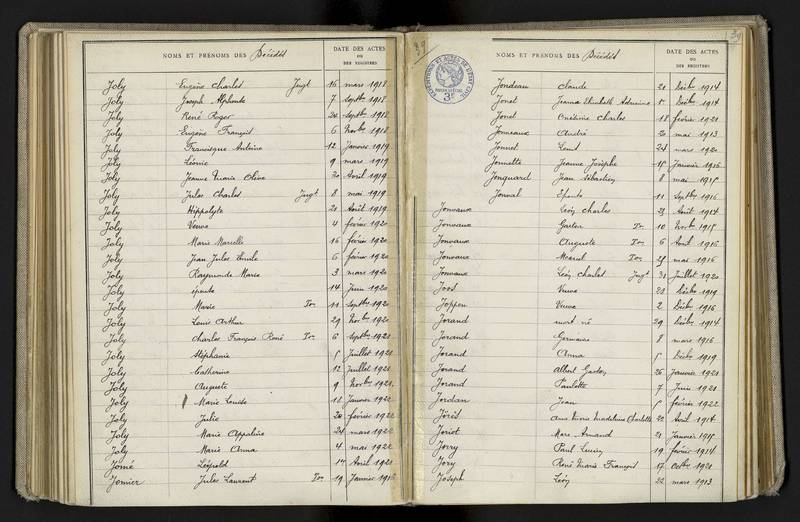 NOMS ET PRÉNOMS DES Décédés DATE DES ACTES OU DES REGISTRES
Joly Eugène Charles Jugt 16 mars 1918
Joly Joseph Alphonse 7 Septbre 1918
Joly René Roger 20 Septbre 1918
Joly Eugène François 6 Novbre 1918
Joly Francisque Antoine 12 Janvier 1919
Joly Léonie 9 mars 1919
Joly Jeanne Marie Olive 20 Avril 1919
Joly Jules Charles Jugt 8 mai 1919
Joly Hippolyte 21 Août 1919
Joly Veuve 4 février 1920
Joly Marie Marcelle 16 février 1920
Joly Jean Jules Emile 6 février 1920
Joly Raymonde Marie 3 mars 1920
Joly épouse 14 Juin 1920
Joly Marie Ton 11 Septbre 1920
Joly Louis Arthur 29 Novbre 1920
Joly Charles François René Ton 6 Septbre 1920
Joly Stéphanie 5 Juillet 1921
Joly Catherine 12 Juillet 1921
Joly Auguste 9 Novbre 1921
Joly Marie Louise 18 Janvier 1922
Joly Julie 20 février 1922
Joly Marie Appoline 24 mars 1922
Joly Marie Anna 4 mai 1922
Jomé Léopold 17 Avril 1921
Jomier Jules Laurent Ton 19 Janvier
39
39
NOMS ET PRÉNOMS DES Décédés DATE DES ACTES OU DES REGISTRES
Jondeau Claude 21 Décbre 1914
Jonet Jeanne Elisabeth Décbre 1914
Jonet Charles 18 février 1920
Jonneaux André 20 mai 1913
Jonnet 24 mars 1920
Jonnette Jeanne Josèphe Janvier 1916
Jonquard Jean Sébastien 8 mai 1915
Jonval Epouse 11 Septbre 1916
Jonvaux Léon Charles 23 Août 1914
Jonvaux Gaston Ton 10 Novbre 1915
Jonvaux Auguste Ton 6 Avril 1916
Jonvaux Marcel Ton mai 1916
Jonvaux Léon Charles Jugt 31 Juillet 1920
Joost Veuve Décbre 1919
Joppen Veuve 2 Décbre 1916
Jorand mort né 29 Décbre 1914
Jorand Germaine 8 mars 1916
Jorand Anna 5 Décbre 1919
Jorand Albert Gaston 26 Janvier 1921
Jorand Paulette 7 Juin 1921
Jordan Jean 5 février 1922
Jorès Anna Maria Madeleine Charlotte 22 Avril 1914
Joriot Marc Armand 21 Janvier 1915
Jorry Paul Lucien 19 février 1914
Jory René Marie François 17 Octbre 1921
Joseph Léon 22 mars 1913